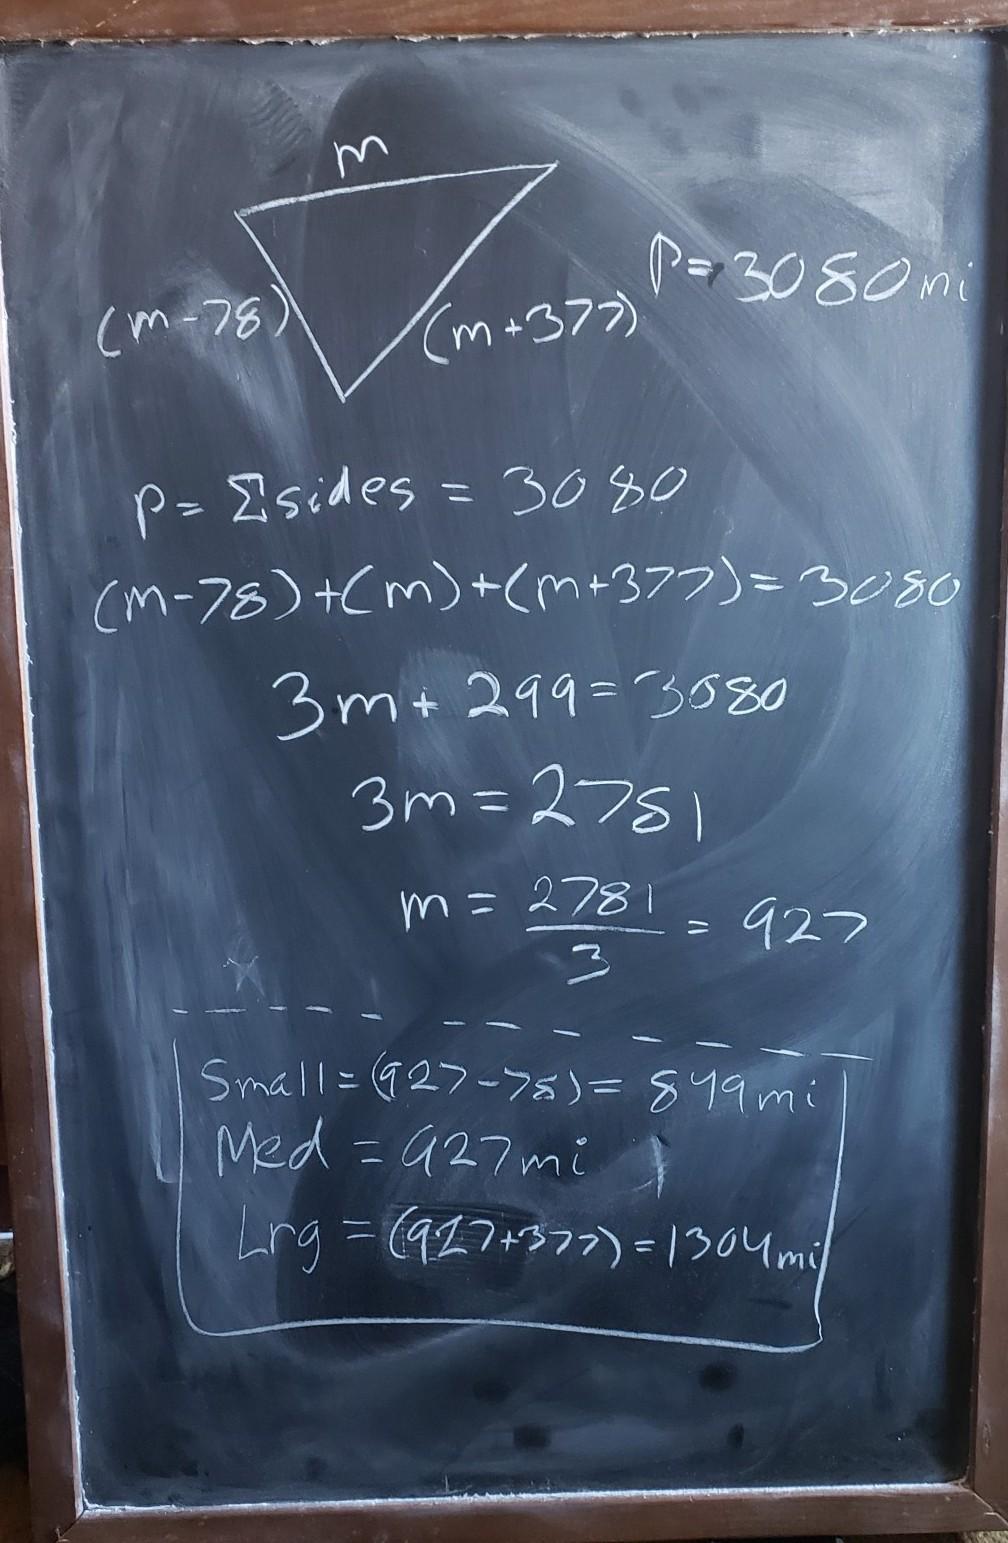 m
P=3080mi
(m-78)
(m+377)
P=Σsides=3080
(m-78)+(m)+(m+377)=3080
3m+299=3080
3m=2781
m=2781/3=927
Small=(927-78)=849mi
Med=927mi
Lrg=(927+377)=1304mi